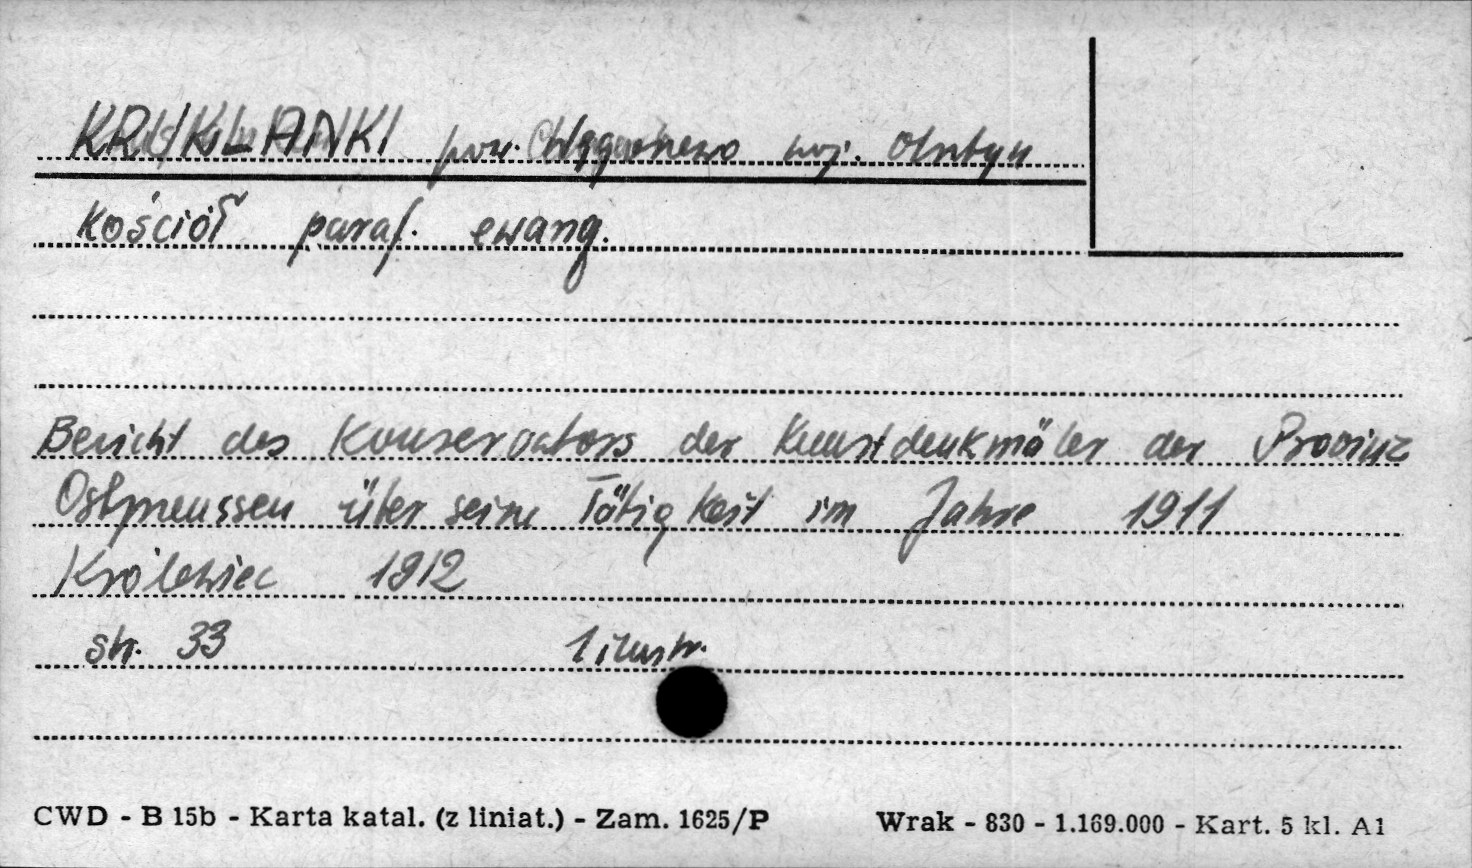 KRUKLANKI pow. Węgorzewo woj. Olsztyn
kościół paraf. ewang.
Bericht des Konservators der Kunstdenkmäler der Provinz
Ostpreussen über seine Tätigkeit im Jahre 1911
Królewiec 1912
str. 33 1 ilustr.
CWD - B 15b - Karta katal. (z liniat.) - Zam. 1625/P Wrak - 830 - 1.169.000 - Kart. 5 kl. A1